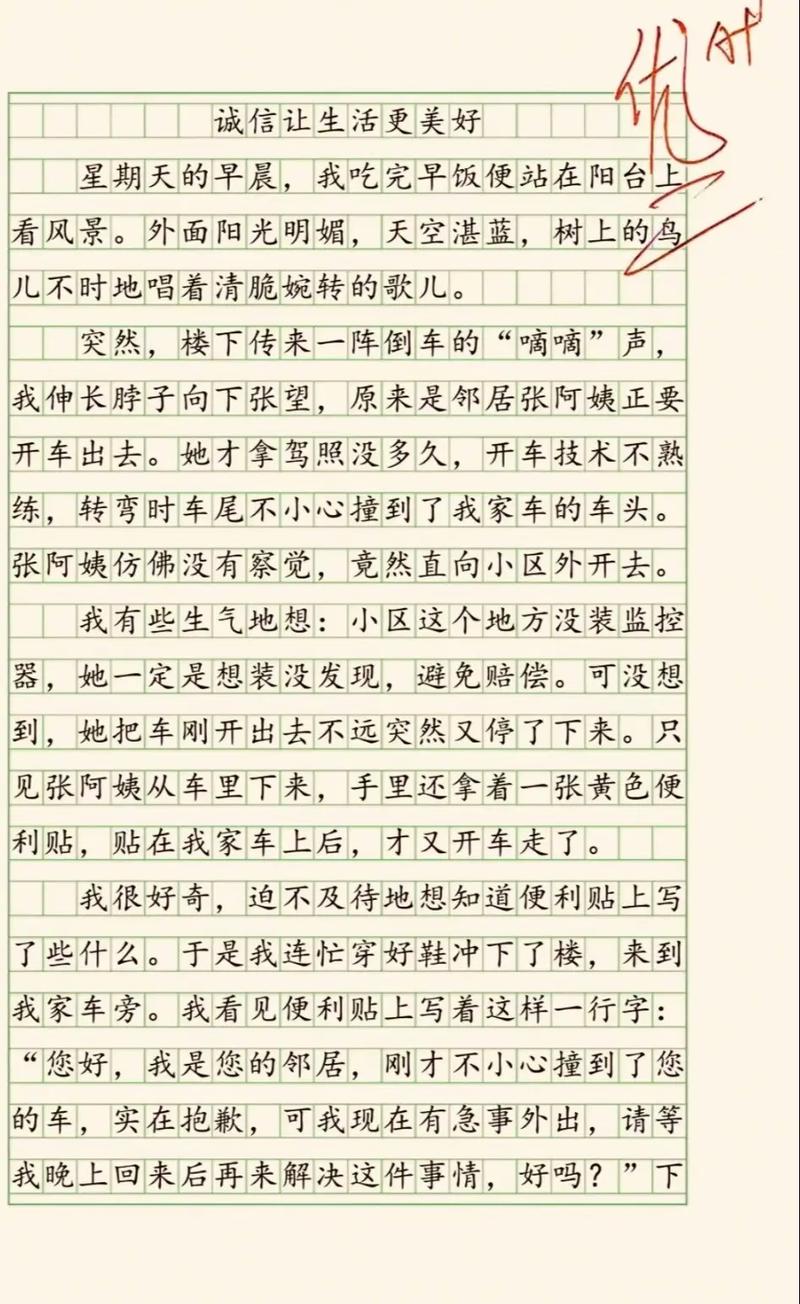 优 A+
诚信让生活更美好
星期天的早晨，我吃完早饭便站在阳台上
看风景。外面阳光明媚，天空湛蓝，树上的鸟
儿不时地唱着清脆婉转的歌儿。
突然，楼下传来一阵倒车的“嘀嘀”声，
我伸长脖子向下张望，原来是邻居张阿姨正要
开车出去。她才拿驾照没多久，开车技术不熟
练，转弯时车尾不小心撞到了我家车的车头。
张阿姨仿佛没有察觉，竟然直向小区外开去。
我有些生气地想：小区这个地方没装监控
器，她一定是想装没发现，避免赔偿。可没想
到，她把车刚开出去不远突然又停了下来。只
见张阿姨从车里下来，手里还拿着一张黄色便
利贴，贴在我家车上后，才又开车走了。
我很好奇，迫不及待地想知道便利贴上写
了些什么。于是我连忙穿好鞋冲下了楼，来到
我家车旁。我看见便利贴上写着这样一行字：
“您好，我是您的邻居，刚才不小心撞到了您
的车，实在抱歉，可我现在有急事外出，请等
我晚上回来后再来解决这件事情，好吗？”下